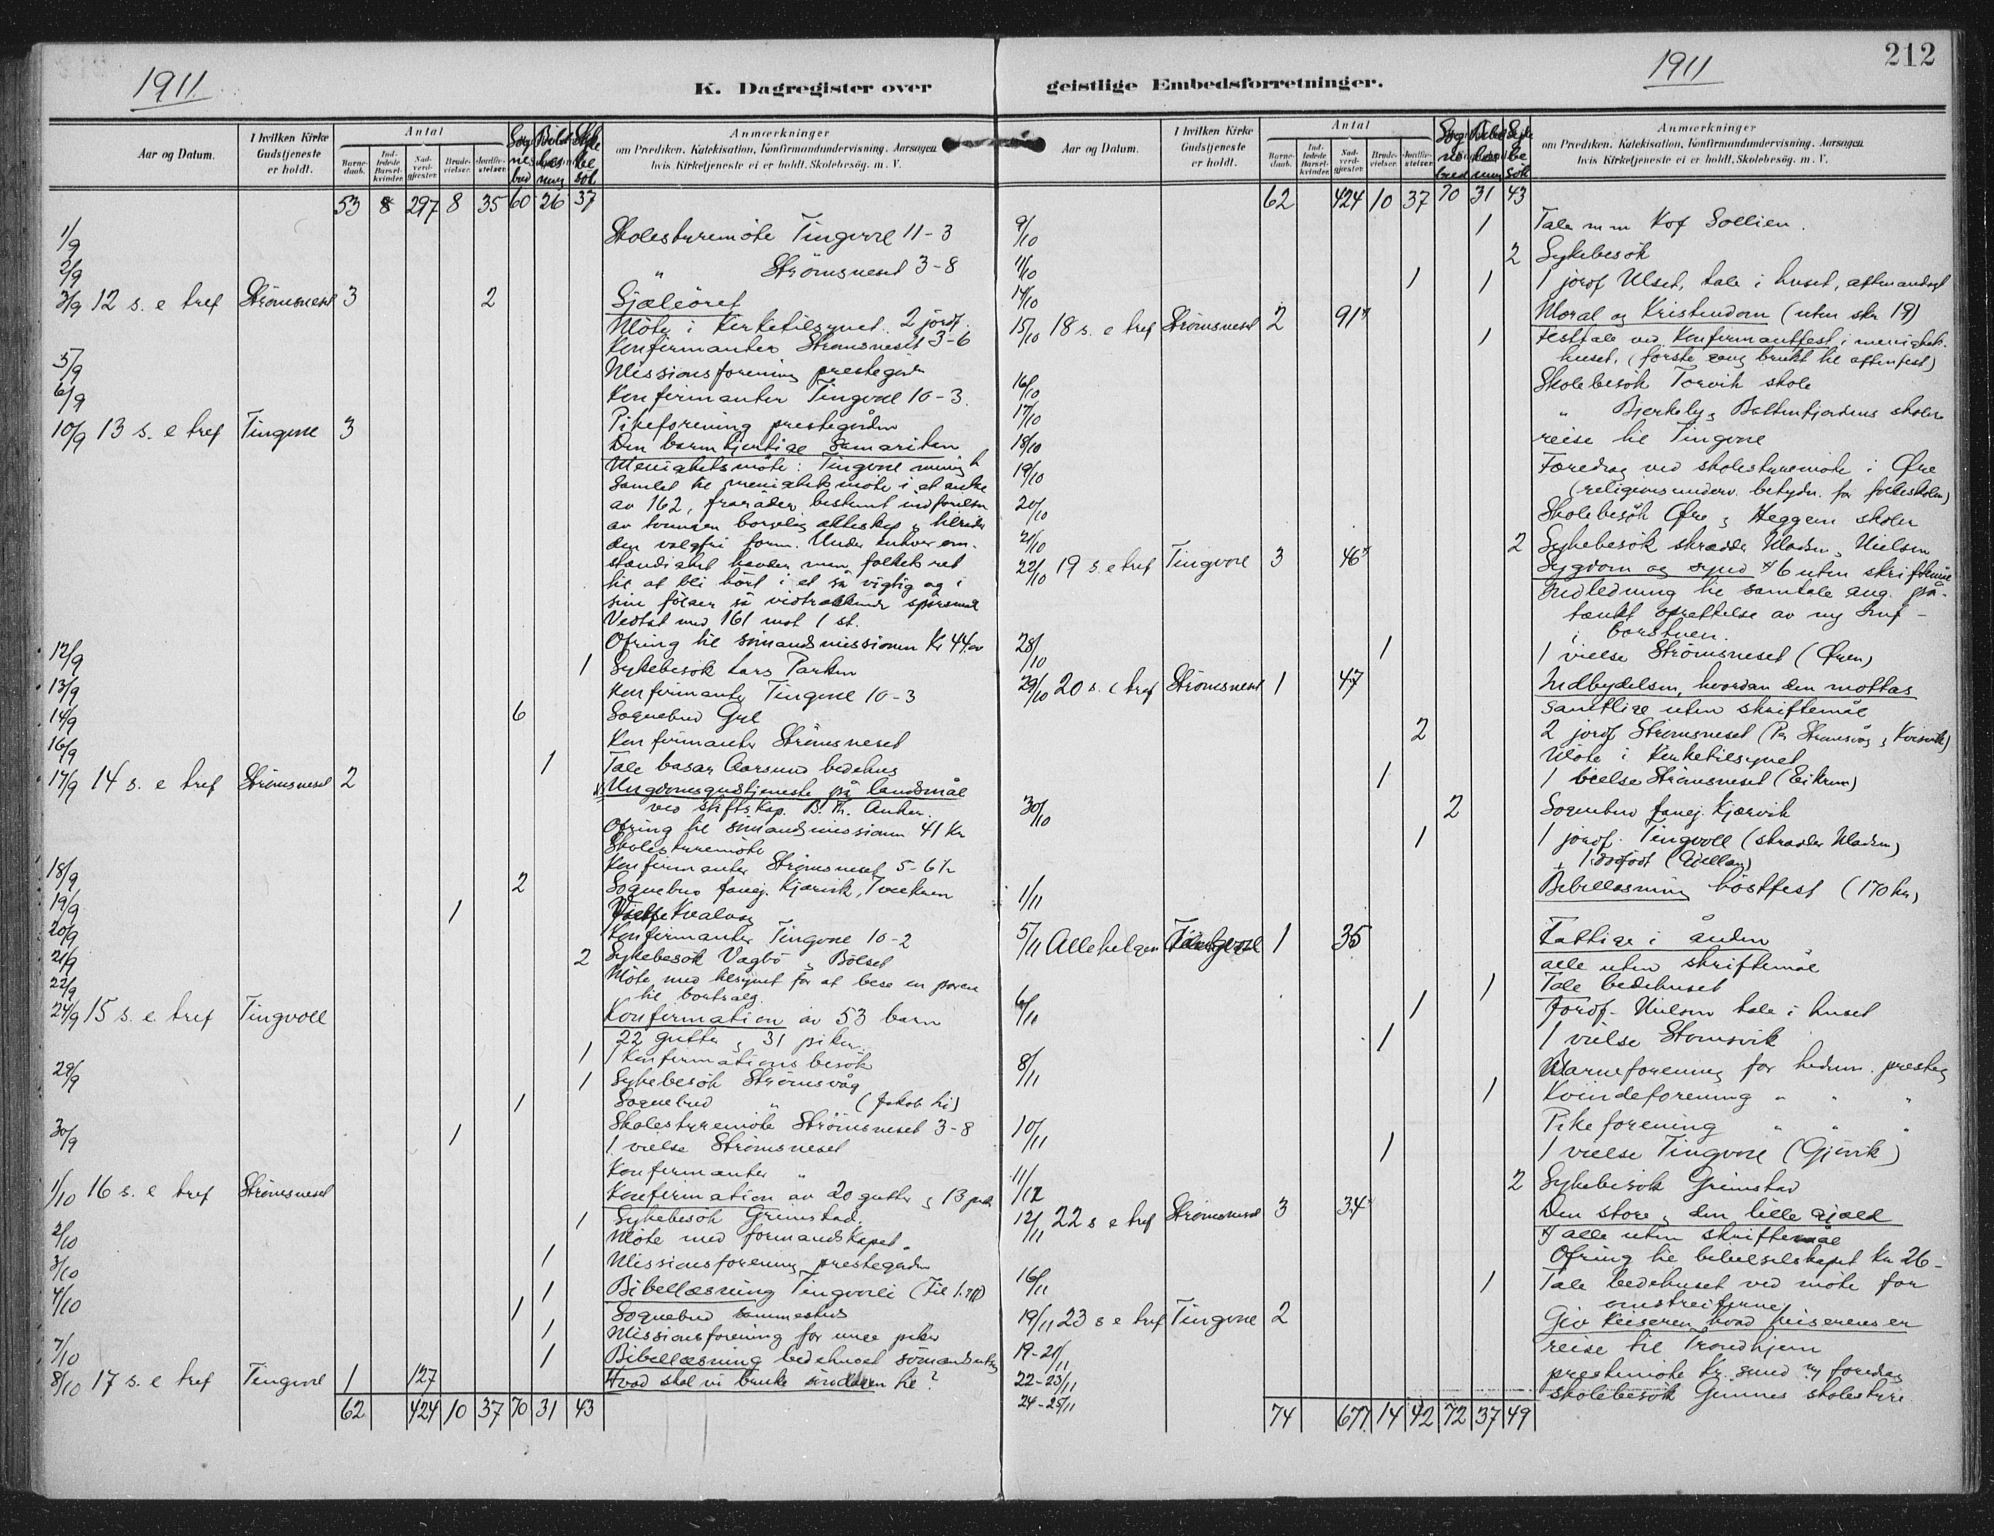 1911
K. Dagregister over
Aar og Datum.
I hvilken Kirke Gudstjeneste er holdt.
Antal
Barnedaab.
Indledede Barselkvinder.
Nadverdgjester
Brudevielser.
Jordfæstelser.
Sognebud
Sykebesøk.
Anmærkninger
om Prædiken. Katekisation, Konfirmandundervisning. Aarsagen
hvis Kirketjeneste ei er holdt. Skolebesög. m. V.
53 8 297 8 35 60 26 37
1/9 Skolestyremöte Tingvoll 11-3
2/9 " Strömsneset 3-8
3/9 12 s. e tref Strømsneset 3 2 Sjæleöret
Möte i Kirketilsynet. 2 jordf.
Konfirmanter Strömsneset 3-6
5/9 Missionsforening prestegård
6/9 Konfirmanter Tingvoll 10-3.
Pikeforening prestegården
10/9 13 s. e tref Tingvoll 3 Den barmhjertige Samaritan
Menighetsmöte: Tingvoll menigh
samlet til menighetsmöte i et antal
av 162, fraråder bestemt indførelse
av tvungen borgerlig ekteskap & tilråder
den valgfri form. Under enhver om-
stændighet hævder men folkets ret
til at bli hört i et så vigtig og i
sine følger så vidtrækkende spørsmål
Vedtat med 161 mot 1 st.
Ofring til sömandsmissionen Kr 44.00
12/9 1 Sykebesök Lars Parken
13/9 Konfirmanter Tingvoll 10-3
14/9 6 Sognebud Gyl
16/9 Konfirmanter Strömsneset
1 Tale basar Aarsund bedehus
17/9 14 s. e tref Strømsneset 2 Ungdomsgudstjeneste på landsmål
ved stiftskap. B. Th. Anker.
Ofring til sömandsmissionen 41 Kr
Skolestyremöte
18/9 Konfirmanter Strömsneset 5-6 1/2
2 Sognebud
19/9 1 Vielse Kvalvåg
20/9 Konfirmanter Tingvoll 10-2
21/9 2 Sykebesök Vågbö & Bölset
22/9 Möte med tilsynet for at bese en
til bortsalg.
24/9 15 s. e tref Tingvoll Konfirmation av 53 barn
22 gutter & 31 piker.
1 1 Konfirmationsbesök
29/9 1 Sykebesök Strömsvåg
1 Sognebud " (Jakob Li)
Skolestyremöte Strömsneset 3-8
30/9 1 1 vielse Strömsneset
Konfirmanter "
1/10 16 s. e tref Strømsneset Konfirmation av 20 gutter & 13 pik
1 Sykebesök Grimstad.
2/10 Möte med formandskapet
3/10 1 Missionsforening prestegården
4/10 1 Bibellæsning Tingvoll
1 Sognebud sammesteds
1 Missionsforening for unge piker
7/10 1 Bibellæsning bedehuset
8/10 17 s. e tref Tingvoll 1 127 Hvad skal vi bruke söndagen til?
62 424 10 37 70 31 43
212
1911
geistlige Embedsforretninger.
Aar og Datum.
I hvilken Kirke Gudstjeneste er holdt.
Antal
Barnedaab.
Indledede Barselkvinder.
Nadverdgjester
Brudevielser.
Jordfæstelser.
Anmærkninger
om Prædiken. Katekisation, Konfirmandundervisning. Aarsagen
hvis Kirketjeneste ei er holdt. Skolebesög. m. V.
62 424 10 37 70 31 43
9/10 1 Tale Sollien.
11/10 2 Sykebesök
14/10 1 1 1 jordf Ulset, tale i huset, aftenandagt
15/10 18 s. e tref Strømsneset 2 91 Moral og Kristendom (uten skr 19)
1 Festtale ved Konfirmantfest i menighets-
huset. (förste gang brukt til aftenfest)
16/10 Skolebesök Torvik skole
17/10 " Bjerkely & Batnfjordens skoler
18/10 reise til Tingvoll
19/10 Foredrag ved skolestyremöte i Øre
(religionsunderv. betydn. for folkeskolen)
20/10 Skolebesök Øre & Heggem skoler
21/10 2 Sykebesök skrædder Madsen & Nielsen
22/10 19 s. e tref Tingvoll 3 46 Sygdom og synd 6 uten skriftemål
Indledning til samtale ang. på-
tænkt oprettelse av ny
28/10 1 1 vielse Strömsneset (Øren)
29/10 20 s. e tref Strömsneset 1 47 Indbydelsen, hvordan den mottas
samtlige uten skriftemål
2 2 jordf Strömsneset
Möte i Kirketilsynet
1 1 vielse Strömsneset (Eikrem)
30/10 2 Sognebud Kjærvik
1 1 jordf. Tingvoll (skrædder Madsen)
1/11 Bibellæsning höstfest (170 kr)
5/11 Allehelgen Tingvoll 1 35 Fattige i ånden
alle uten skriftemål
1 Tale bedehuset
6/11 1 Jordf. Nielsen tale i huset
1 1 vielse Stomsvik
8/11 Barneforening for hedm. presteg
1 Kvindeforening " " "
10/11 Pikeforening " " "
1 1 vielse Tingvoll (Gjörvik)
11/11 2 Sykebesök Grimstad
12/11 22 s e tref Strömsneset 3 34 Den store & den lille gjæld
alle uten skriftemål
Ofring til bibelselskapet Kr 26-
16/11 1 Tale bedehuset ved möte for
omstreiferne
19/11 23 s e tref Tingvoll 2 Giv Keiseren hvad keiserens er
19-21/11 reise til Trondhjem
22-23/11 prestemöte Kr. sund & foredrag
24-25/11 skolebesök Gimnes skolestyre
74 677 14 42 72 37 49